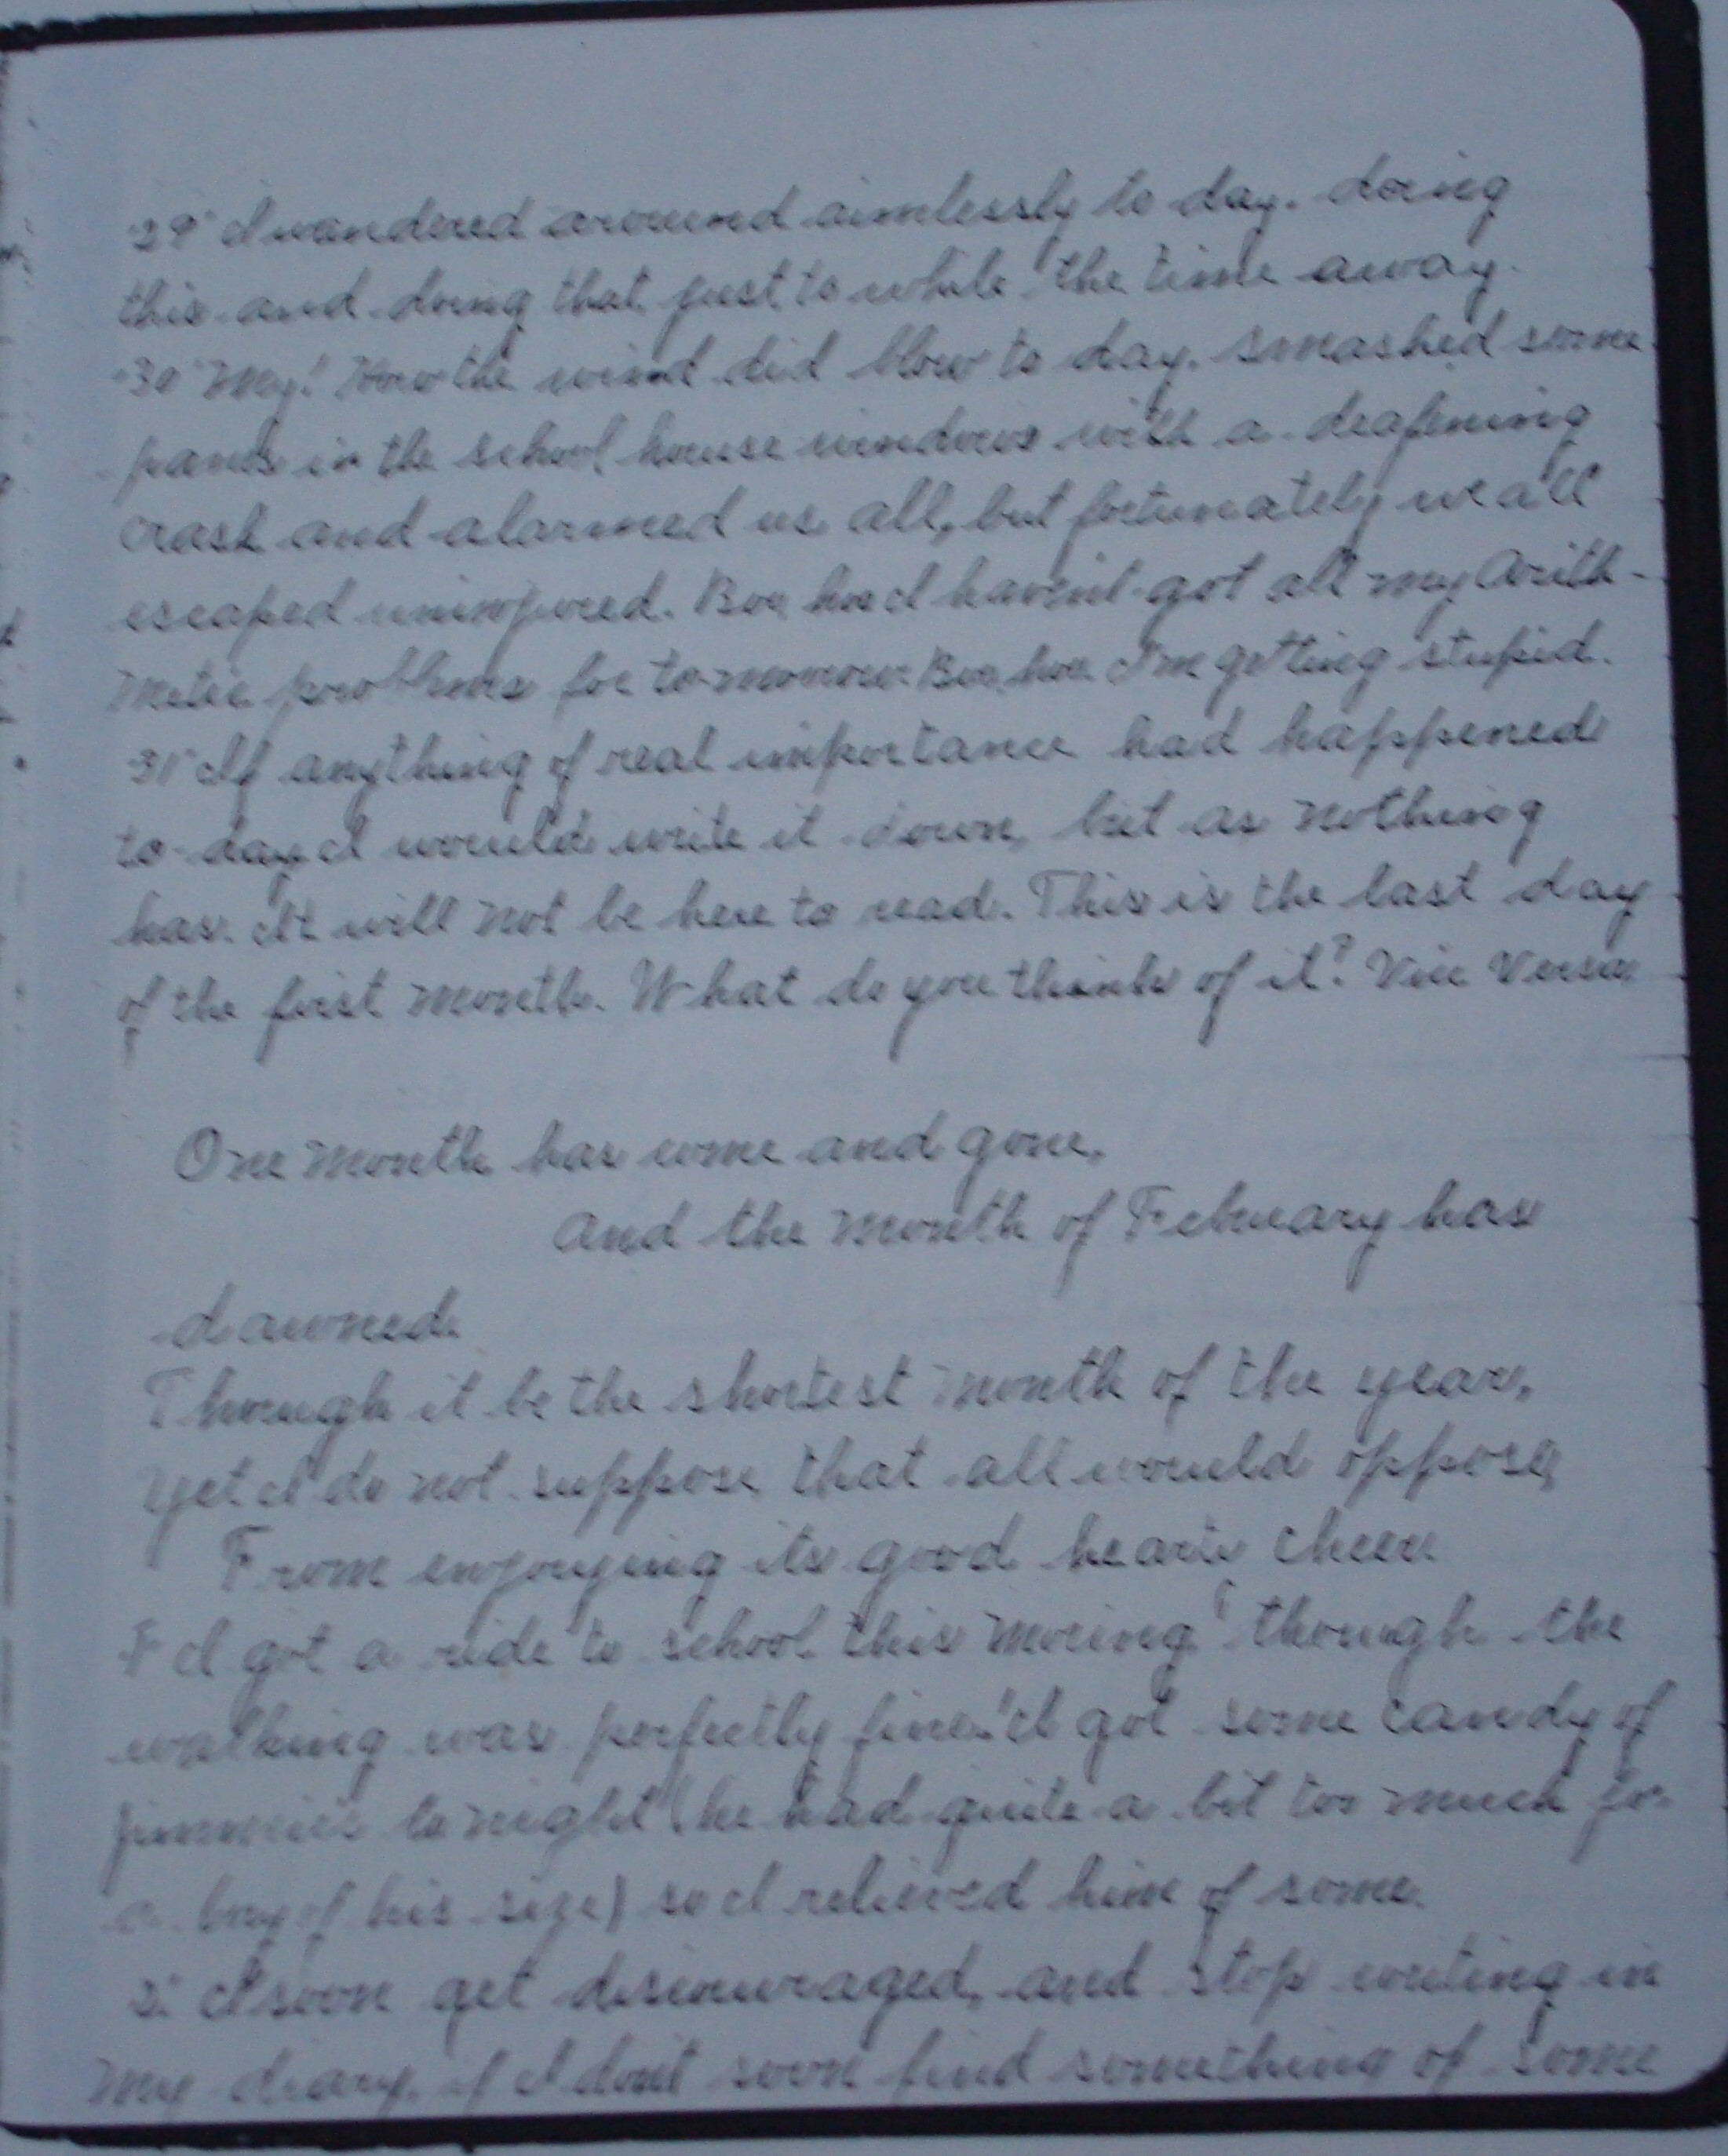 29" I wandered around aimlessly to day. doing
this and doing that just to while the time away.
30" My! How the wind did blow to day. smashed some
panes in the school house windows with a deafening
crash and alarmed us all, but fortunately we all
escaped uninjured. Boo hoo I havn't got all my Arith-
metic problems for to-morrow. Boo, hoo I'm getting stupid.
31" If anything of real importance had happened
to-day I would write it down, but as nothing
has. It will not be here to read. This is the last day
of the first month. What do you think of it? Vice Versa
One month has come and gone,
And the month of February has
dawned.
Though it be the shortest month of the year,
Yet I do not suppose that all would oppose,
From enjoying its good hearts cheer
I got a ride to school this moring though the
walking was perfectly fine. I got some candy of
jimmies to night (he had quite a bit too much for
a boy of his size) so I relieved him of some.
2" I soon get discouraged, and stop writing in
my diary, if I don't soon find something of some